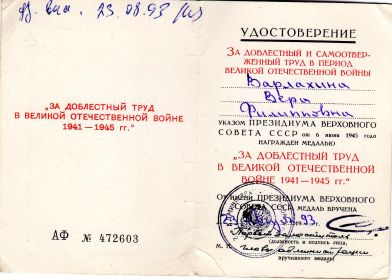 23.08.93
„ЗА ДОБЛЕСТНЫЙ ТРУД
В ВЕЛИКОЙ ОТЕЧЕСТВЕННОЙ ВОЙНЕ
1941—1945 гг.“
АФ № 472603
УДОСТОВЕРЕНИЕ
ЗА ДОБЛЕСТНЫЙ И САМООТВЕР-
ЖЕННЫЙ ТРУД В ПЕРИОД
ВЕЛИКОЙ ОТЕЧЕСТВЕННОЙ ВОЙНЫ
Варлахина
Вера
Филипповна
УКАЗОМ ПРЕЗИДИУМА ВЕРХОВНОГО
СОВЕТА СССР от 6 июня 1945 года
НАГРАЖДЕН МЕДАЛЬЮ
„ЗА ДОБЛЕСТНЫЙ ТРУД
В ВЕЛИКОЙ ОТЕЧЕСТВЕННОЙ
ВОЙНЕ 1941—1945 гг.“
От имени ПРЕЗИДИУМА ВЕРХОВНОГО
СОВЕТА СССР МЕДАЛЬ ВРУЧЕНА
93
Первый заместитель
(должность и подпись лица,
М. П. главы администрации
вручившего медаль)